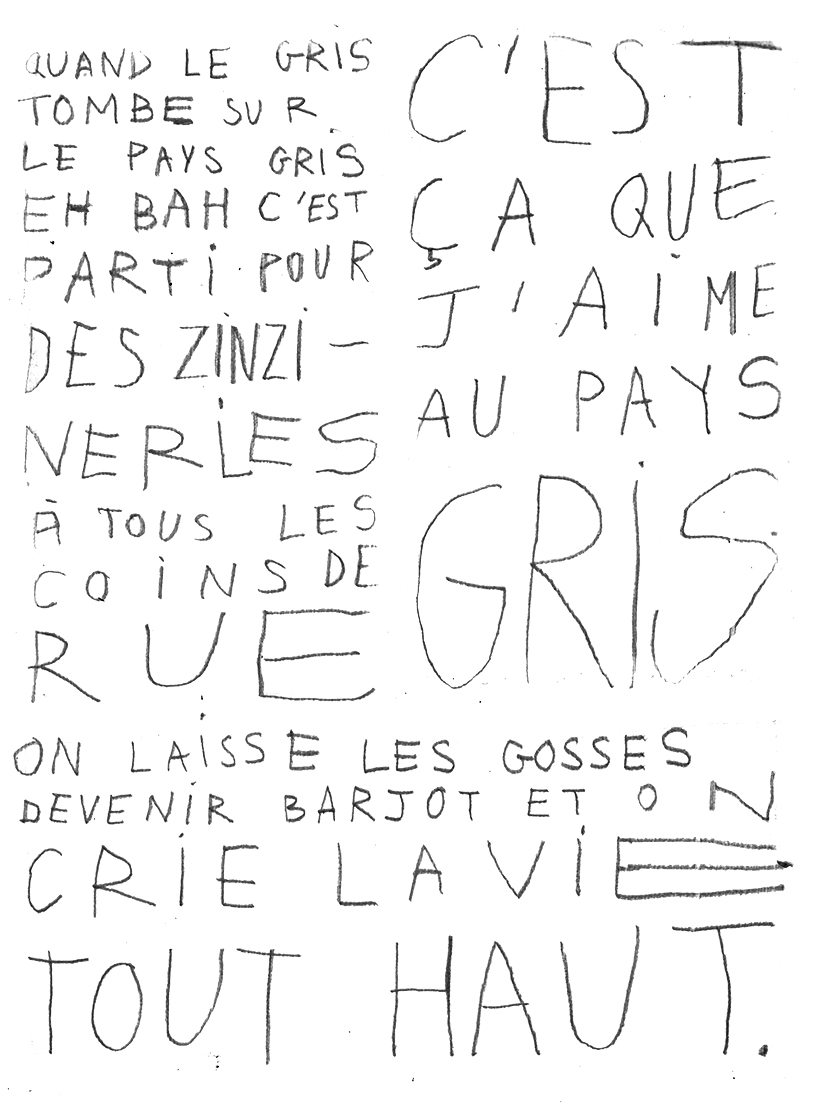 QUAND LE GRIS
TOMBE SUR
LE PAYS GRIS
EH BAH C'EST
PARTI POUR
DES ZINZI-
NERIES
À TOUS LES
COINS DE
RUE
C'EST
ÇA QUE
J'AIME
AU PAYS
GRIS
ON LAISSE LES GOSSES
DEVENIR BARJOT ET ON
CRIE LA VIE
TOUT HAUT.